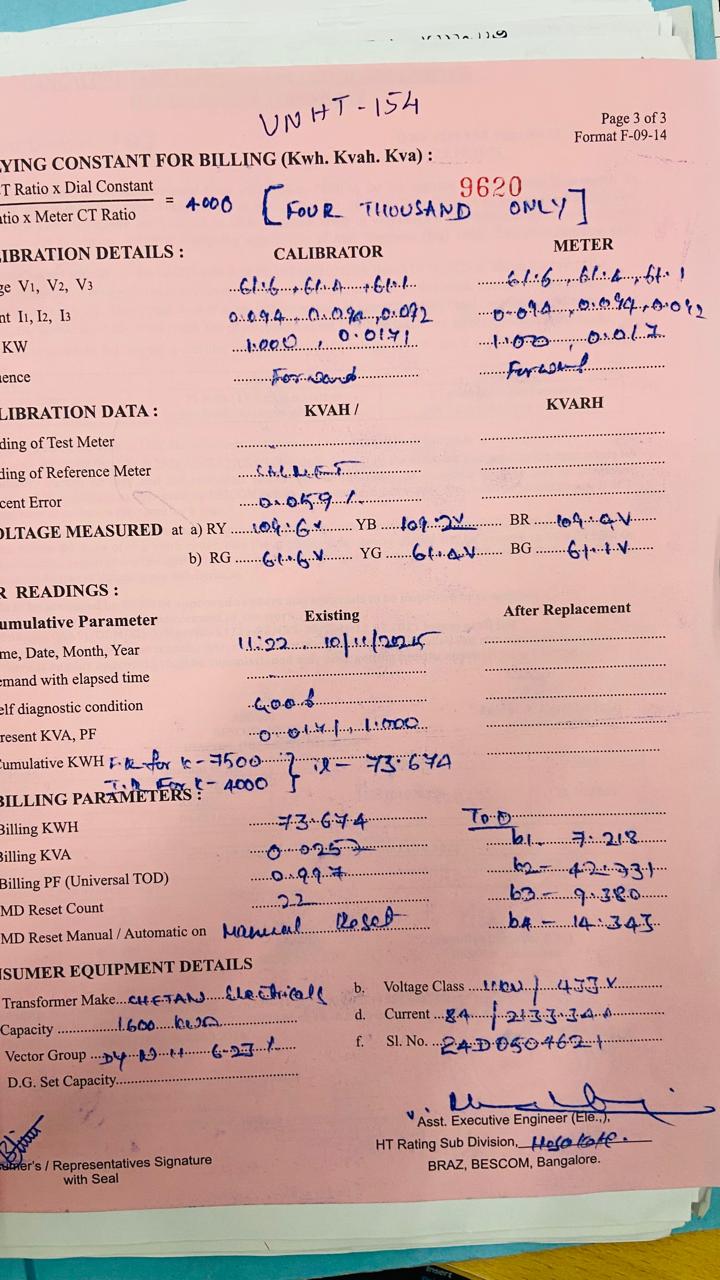 VNHT-154
Page 3 of 3
Format F-09-14
YING CONSTANT FOR BILLING (Kwh. Kvah. Kva) :
T Ratio x Dial Constant
tio x Meter CT Ratio
= 4000 [FOUR THOUSAND ONLY]
9620
IBRATION DETAILS : CALIBRATOR METER
ge V1, V2, V3 61.6, 61.4, 61.1 61.6, 61.4, 61.1
nt I1, I2, I3 0.094, 0.092, 0.092
KW 1.000, 0.0171 0.017
ence Forward Forward
LIBRATION DATA : KVAH / KVARH
ding of Test Meter
ding of Reference Meter
cent Error 0.059 %
OLTAGE MEASURED at a) RY 109.6V YB 109.2V BR
b) RG 61.6V YG 61.4V BG 61.1V
R READINGS :
umulative Parameter Existing After Replacement
me, Date, Month, Year 11:22 10/11/2025
emand with elapsed time
elf diagnostic condition Good
resent KVA, PF 0.0171, 1.000
Cumulative KWH F.R for K-7500 } is - 73.674
I.R For K-4000
BILLING PARAMETERS :
Billing KWH 73.674 TOD
Billing KVA 0.0257 b1 - 7.218
Billing PF (Universal TOD) 0.997 b2 - 42.731
MD Reset Count 22 b3 - 9.380
MD Reset Manual / Automatic on Manual Reset b4 - 14.343
NSUMER EQUIPMENT DETAILS
Transformer Make CHETAN Electricals b. Voltage Class 11KV / 433V
Capacity 1600 KVA d. Current 84 / 2133.3 A
Vector Group DY N 11 6.23 % f. Sl. No. 24D050462-1
D.G. Set Capacity
Asst. Executive Engineer (Ele.,),
HT Rating Sub Division, Hosakote.
BRAZ, BESCOM, Bangalore.
umer's / Representatives Signature
with Seal